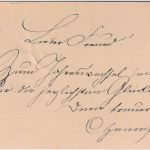 Lieber Freund!
Zum Jahreswechsel
die herzlichsten Glück
Dein treuer